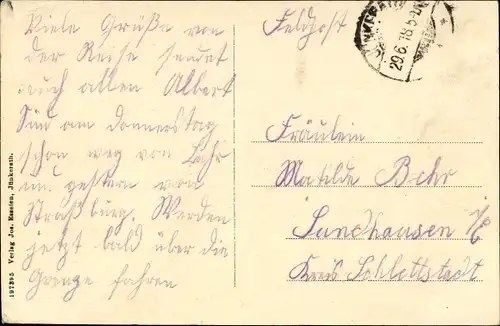 Viele Grüße von
der Reise sendet
auch allen Albert
Sind am Donnerstag
schon weg von Lahr
u. gestern von
Straßburg. Werden
jetzt bald über die
Grenze fahren
Feldpost
JÜNKERATH
29.6.18.5-
Fräulein
Matilde Behr
Sundhausen i/E
Kreis Schlettstadt
197395 Verlag Jos. Massen, Jünkerath.